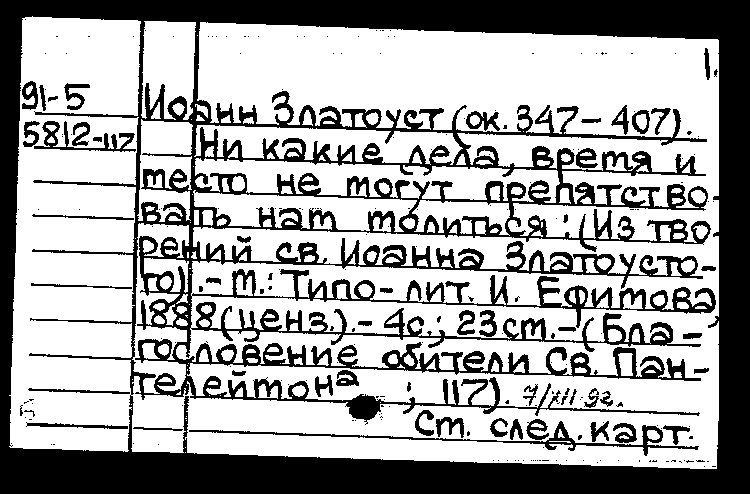 1.
91-5
Иоанн Златоуст (ок. 347 - 407).
5812-117
Ни какие дела, время и
место не могут препятство-
вать нам молиться : (Из тво-
рений св. Иоанна Златоусто-
го). - М. : Типо-лит. И. Ефимова,
1888 (ценз.). - 4с.; 23 см. - (Бла-
гословение обители Св. Пан-
телеймона ; 117). 7/XII 92.
6
См. след. карт.